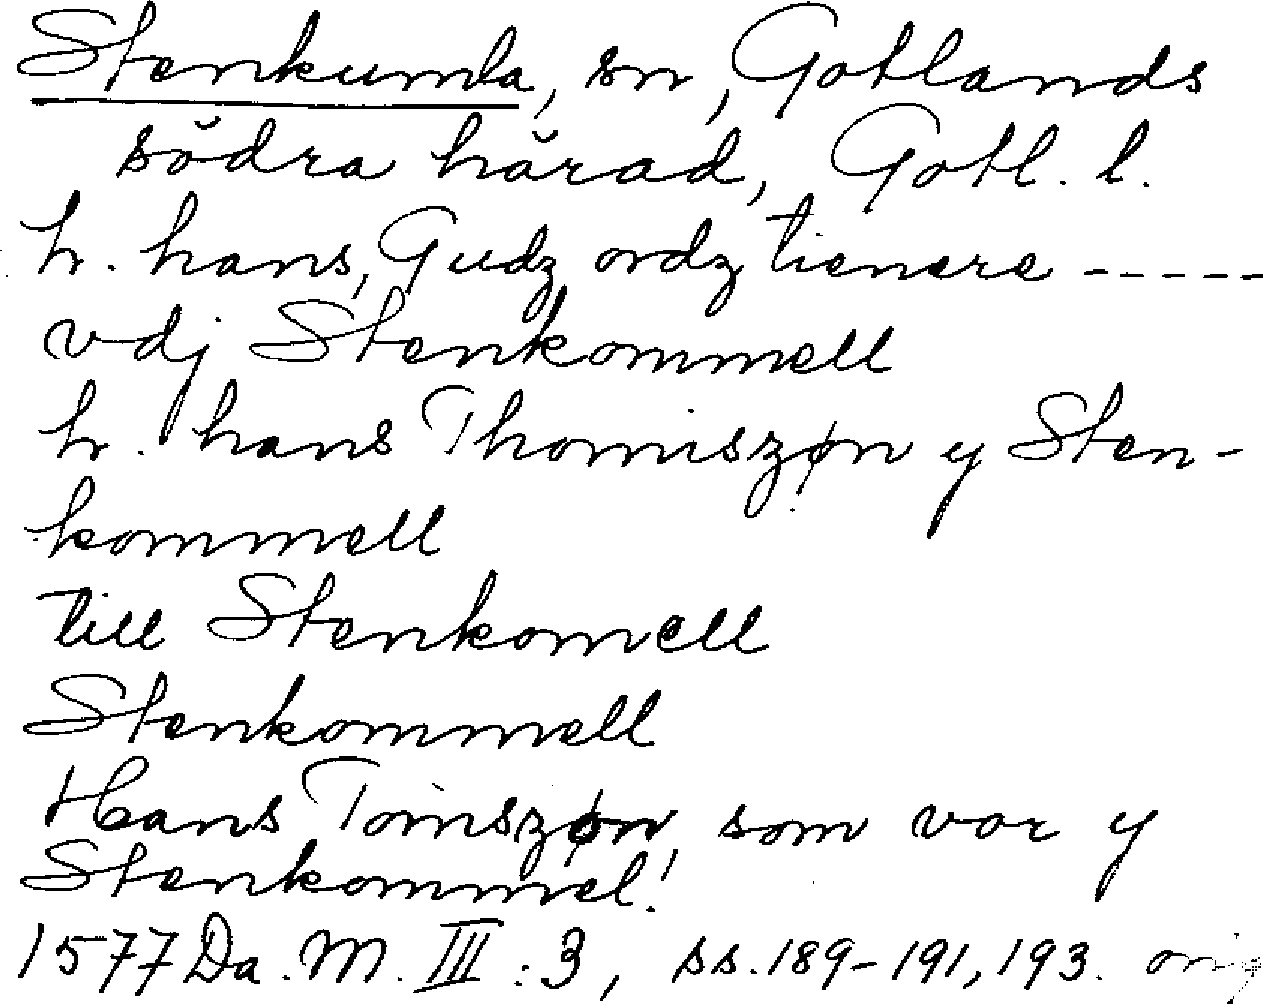 Stenkumla, sn, Gotlands
södra härad, Gotl. l.
h. hans, Gudz ordz tienere -----
vdj Stenkommell
h. hans Thomiszøn y Sten-
kommell
till Stenkomell
Stenkommell
Hans Tomszøn, som vor y
Stenkommel!
1577 Da. M. III:3, ss. 189-191, 193. orig